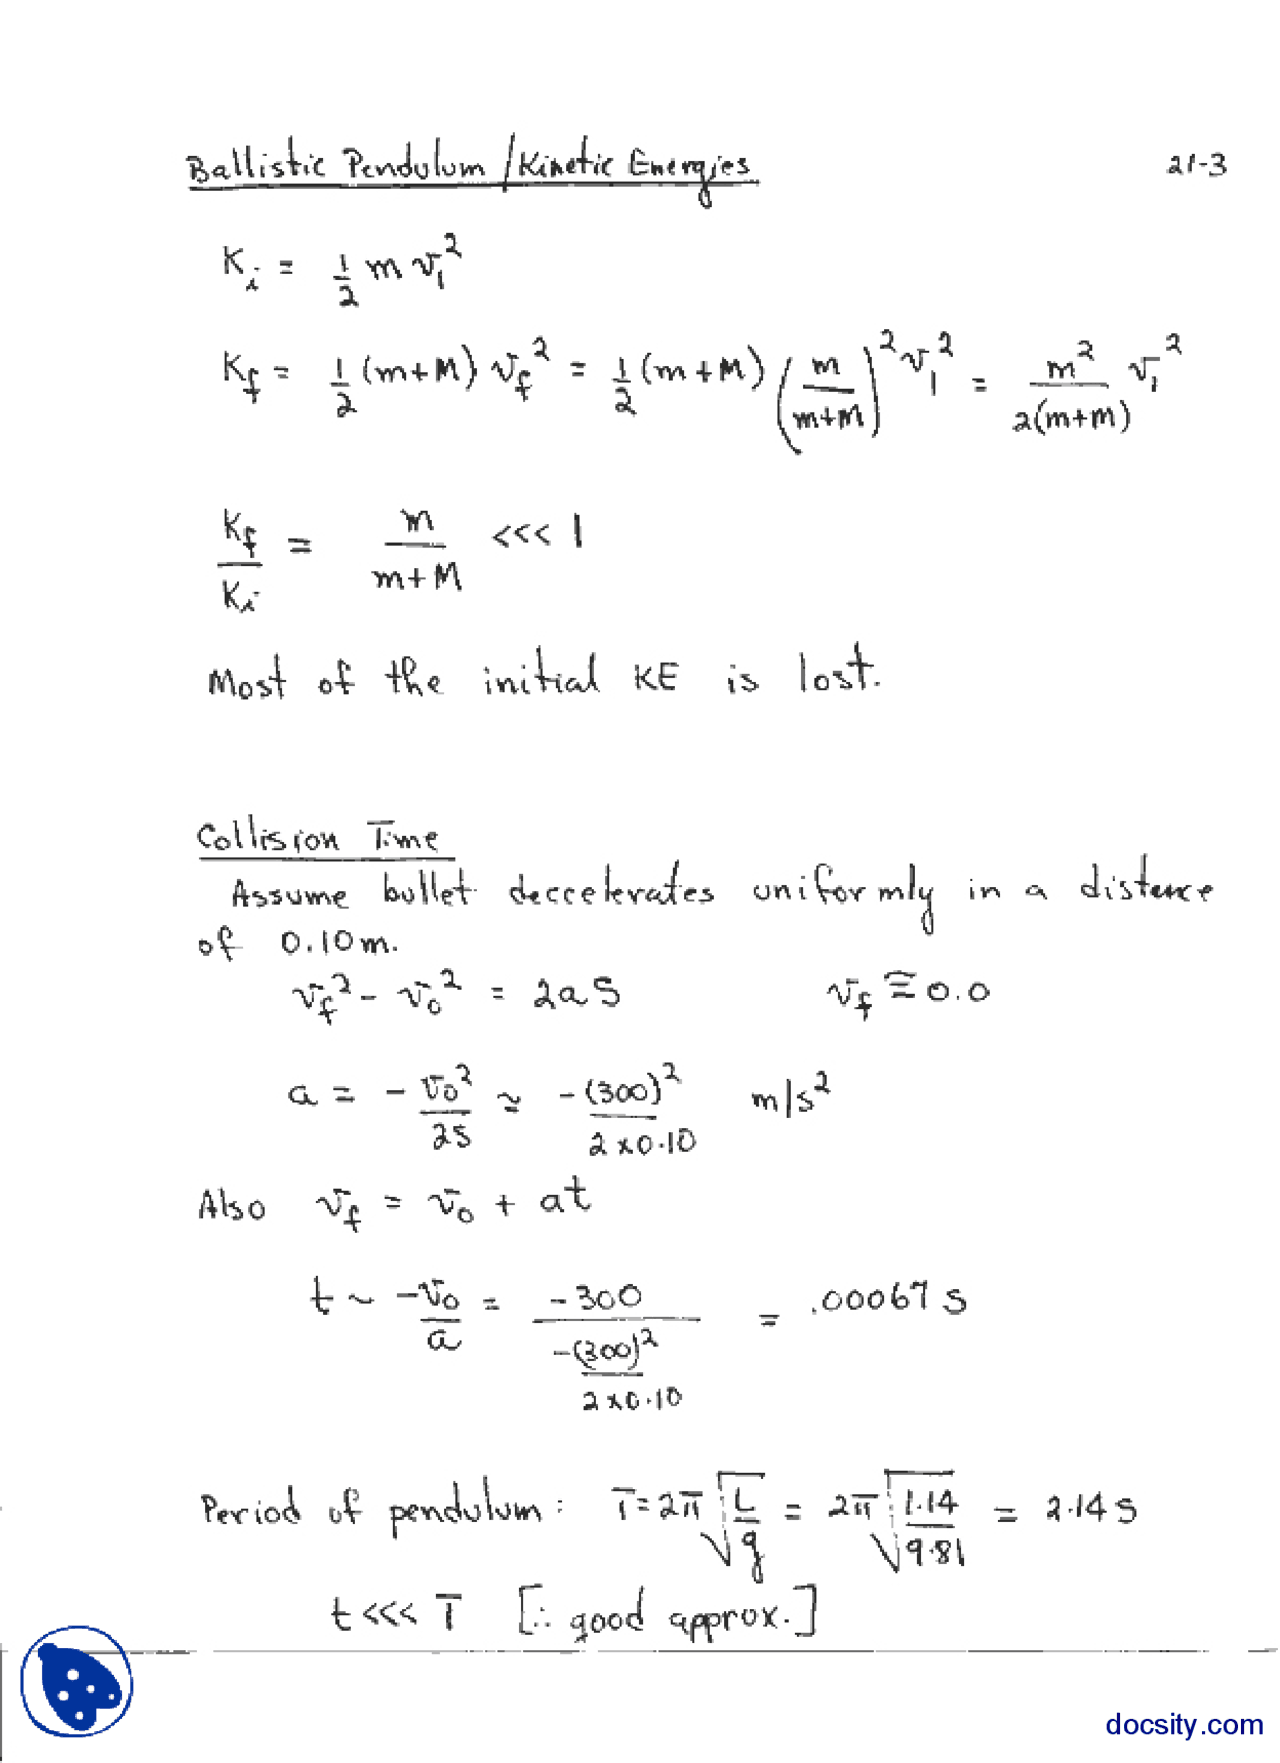 Ballistic Pendulum / Kinetic Energies 21-3
K_i = 1/2 m v_1^2
K_f = 1/2 (m+M) v_f^2 = 1/2 (m+M) (m/(m+M))^2 v_1^2 = m^2/(2(m+M)) v_1^2
K_f/K_i = m/(m+M) <<< 1
Most of the initial KE is lost.
Collision Time
Assume bullet deccelerates uniformly in a distance
of 0.10m.
v_f^2 - v_0^2 = 2as v_f ≅ 0.0
a = -v_0^2/2s ≈ -(300)^2/(2×0.10) m/s^2
Also v_f = v_0 + at
t ~ -v_0/a = -300/(-(300)^2/(2×0.10)) = .00067 s
Period of pendulum: T = 2π√(L/g) = 2π√(1.14/9.81) = 2.14 s
t <<< T [∴ good approx.]
docsity.com